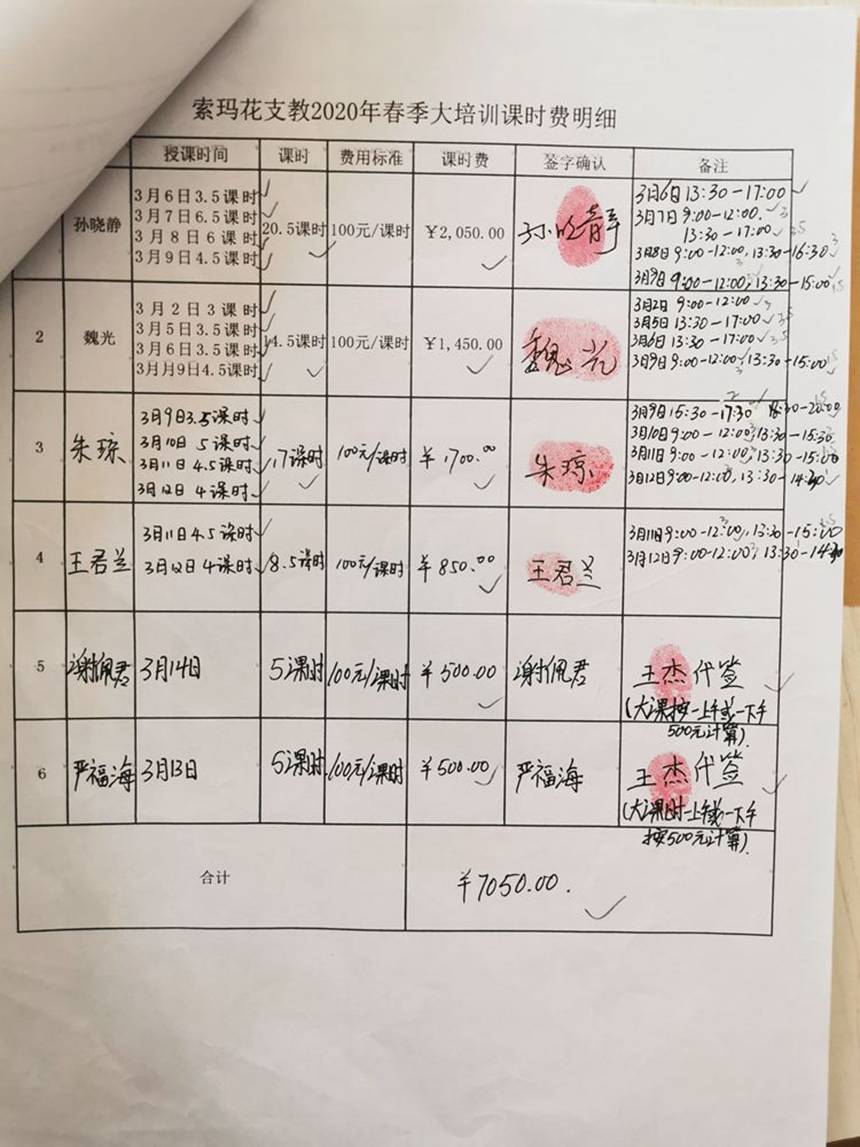 索玛花支教2020年春季大培训课时费明细
授课时间 课时 费用标准 课时费 签字确认 备注
孙晓静
3月6日3.5课时
3月7日6.5课时
3月8日6课时
3月9日4.5课时
20.5课时 100元/课时 ¥2,050.00
3月6日13:30-17:00
3月7日9:00-12:00
13:30-17:00
3月8日9:00-12:00,13:30-16:30
3月9日9:00-12:00,13:30-15:00
2 魏光
3月2日3课时
3月5日3.5课时
3月6日3.5课时
3月月9日4.5课时
14.5课时 100元/课时 ¥1,450.00 魏光
3月2日 9:00-12:00
3月5日 13:30-17:00
3月6日 13:30-17:00
3月9日9:00-12:00,13:30-15:00
3 朱琼
3月9日3.5课时
3月10日 5课时
3月11日 4.5课时
3月12日 4课时
17课时 100元/课时 ¥1700.00 朱琼
3月9日15:30-17:30 18:30-20:00
3月10日9:00-12:00,13:30-15:30
3月11日9:00-12:00,13:30-15:00
3月12日9:00-12:00,13:30-14:30
4 王君兰
3月11日4.5课时
3月12日4课时
8.5课时 100元/课时 ¥850.00 王君兰
3月11日9:00-12:00,13:30-15:00
3月12日9:00-12:00,13:30-14:30
5 谢佩君 3月14日 5课时 100元/课时 ¥500.00 谢佩君 王杰代签
(大课按一上午或一下午
500元计算)
6 严福海 3月13日 5课时 100元/课时 ¥500.00 严福海 王杰代签
(大课时一上午或一下午
按500元计算)
合计 ¥7050.00.